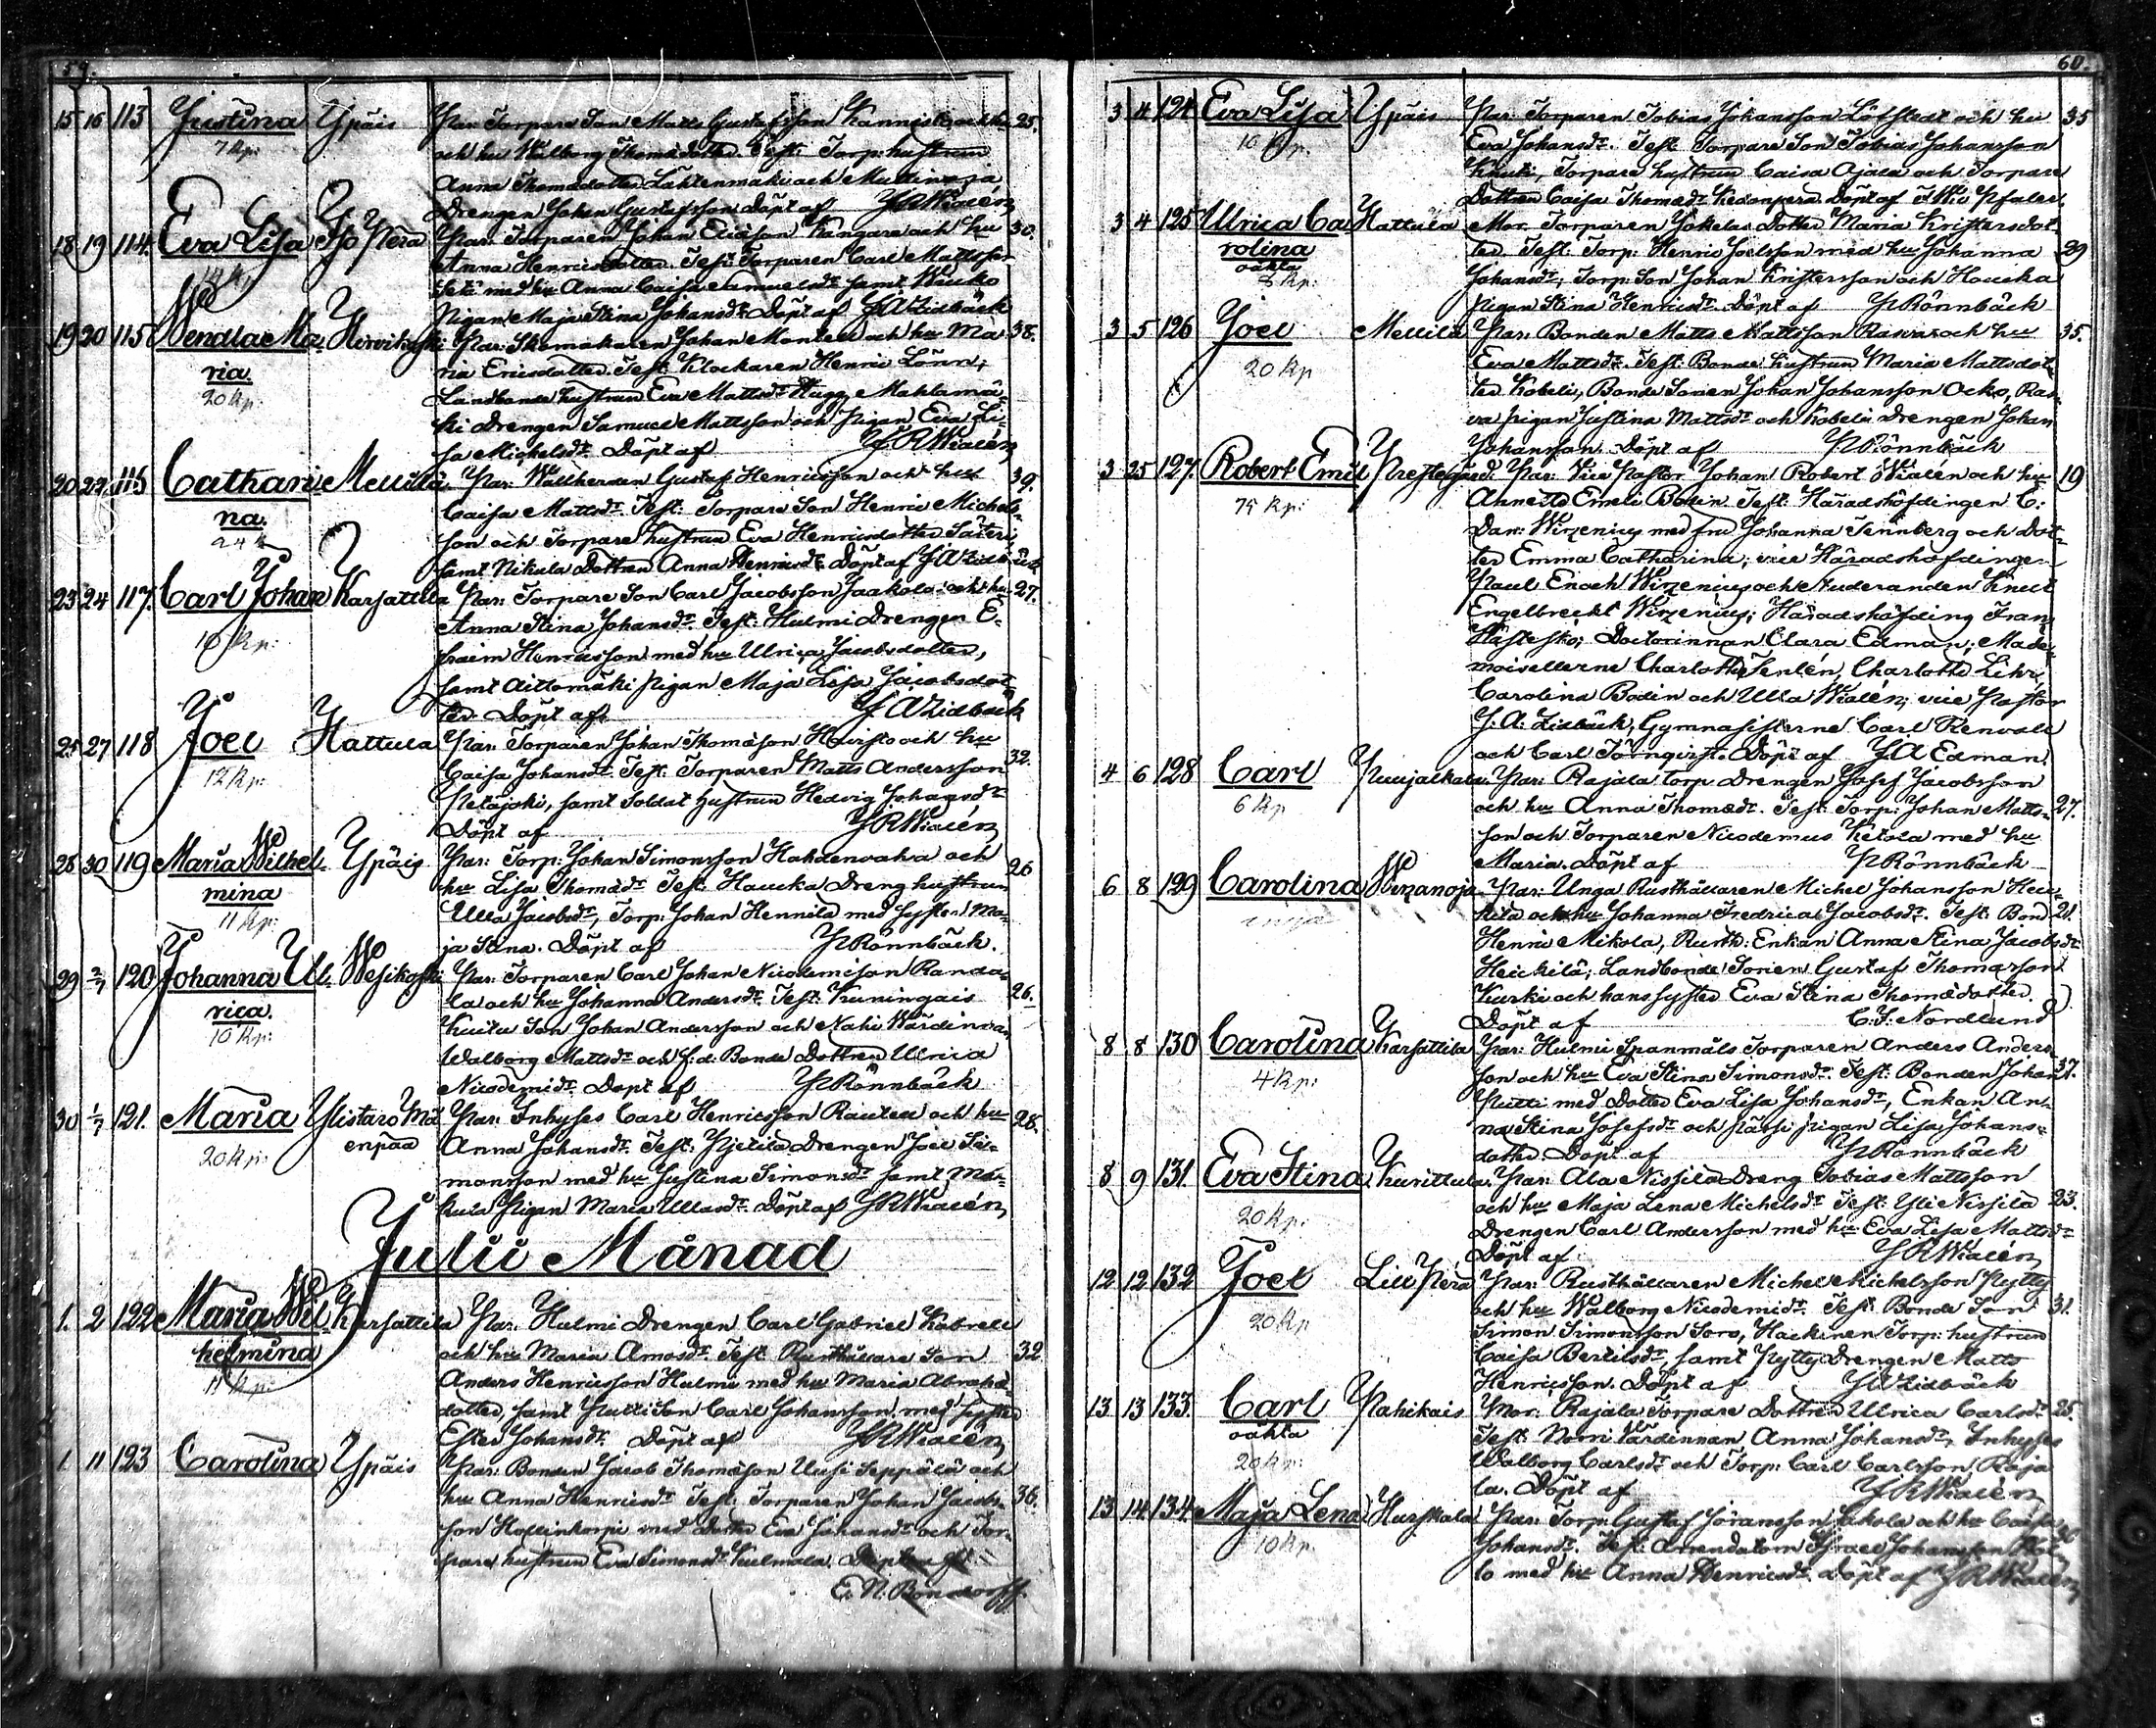 59.
15 16 113 Justina Ypäis Par: Torpare Son Matts Gustafsson Kannisto 25.
7 kp: och hu Walborg Thomædotter. Test: Torp: hustrun
Anna Thomædotter Lähtenmäki och
Drengen Johan Gustafsson Döpt af J R Wialén
18 19 114. Eva Lisa Iso Perä Par: Torparen Johan Ericsson Kangare och hu 30.
Anna Henricsdotter. Test: Torparen Carl Mattsson
med hu Anna Caisa Samuelsdr samt
Pigan Maja Stina Johansdr. Döpt af J A Zidbäck
19 20 115 Wendla Ma- Hirvikoski Par: Skomakaren Johan Monten och hu Ma- 38.
ria. ria Ericsdotter. Test: Klockaren Henric Lönn,
20 kp: Landbonde hustrun Eva Mattsdr Mahlamä-
ki Drengen Samuel Mattsson och Pigan Eva Li-
sa Michelsdr. Döpt af J R Wialén
20 27 116 Cathari- Mellilä. Par: Wallherden Gustaf Henricsson och hu 39.
na. Caisa Mattsdr. Test: Torpare Son Henric Michels-
24 k son och Torpare hustrun Eva Henricsdotter
samt Nikula Dottren Anna Henricsdr. Döpt af J A Zidbäck
23 24 117. Carl Johan Karsattila Par: Torpare Son Carl Jacobsson Jaakola och hu 27.
10 kp: Anna Stina Johansdr. Test: Hulmi Drengen E-
fraim Henricsson med hu Ulrica Jacobsdotter,
samt Aittomäki Pigan Maja Lisa Jacobsdot-
ter. Döpt af J A Zidbäck
25 27 118 Joel Hattula Par: Torparen Johan Thomæson Havisto och hu
12 kp: Caisa Johansdr. Test: Torparen Matts Andersson 32.
Petäjoki, samt Soldat hustrun Hedvig Johansdr
Döpt af J R Wialén
28 30 119 Maria Wilhel- Ypäis Par: Torp: Johan Simonsson Kahdenvaha och 26
mina hu Lisa Thomædr. Test: Haucka Dreng hustrun
11 kp: Ulla Jacobsdr, Torp: Johan Hennila med syster Ma-
ja Stina. Döpt af J P Rönnbäck.
29 2/7 120 Johanna Ul- Wesikoski Par: Torparen Carl Johan Nicodemison Randa-
rica. la och hu Johanna Andersdr. Test: Kuningais 26.
10 kp: Son Johan Andersson och Nahi Wärdinnan
Walborg Mattsdr och f.d. Bonde Dottren Ulrica
Nicodemidr. Döpt af J P Rönnbäck
30 1/7 121. Maria Ylistaro Mä- Par: Inhyses Carl Henricsson och hu 28.
20 kp: enpää Anna Johansdr. Test: Pietilä Drengen Joel Si-
monsson med hu Justina Simonsdr samt
Pigan Maria Ullasdr. Döpt af J R Wialén
Julii Månad
1. 2 122 Maria Wil- Karsattila Par: Hulmi Drengen Carl Gabriel Kabrell
helmina och hu Maria Amosdr. Test: Rusthållare Son 32
11 kp: Anders Henricsson Hulmi med hu Maria Abraha-
dotter, samt Putti Son Carl Johansson med syster
Ester Johansdr. Döpt af J R Wialén
1 11 123 Carolina Ypäis Par: Bonden Jacob Thomæson Uusi Seppälä och
hu Anna Henricsdr. Test: Torparen Johan Jacobs- 36.
son Hollinkorpi med Dotter Eva Johansdr och Tor-
pare hustrun Eva Simonsdr Kulmala. Döpt af
E. N. Bonsdorff
60.
3 4 124 Eva Lisa Ypäis Par: Torparen Tobias Johansson Löfstedt och hu 35
10 kp. Eva Johansdr. Test: Torpare Son Tobias Johansson
Torpare hustrun Caisa Ojala och Torpare
Dottren Caisa Thomædr Kedonperä. Döpt af
3 4 125 Ulrica Ca- Hattula Mor. Torparen Jokelas Dotter Maria Kristersdot-
rolina ter Test: Torp: Henric Joelsson med hu Johanna 29
oäkta Johansdr, Torp: Son Johan Kristersson och Haucka
8 kp: Pigan Stina Henricsdr. Döpt af J P Rönnbäck
3 5 126 Joel Mellilä Par: Bonden Matts Mattsson Rasva och hu 35.
20 kp Eva Mattsdr. Test: Bonde hustrun Maria Mattsdot-
ter Kobeli, Bonde Sonen Johan Johansson Ocko, Ras-
va pigan Justina Mattsdr och Kobeli Drengen Johan
Johansson Döpt af J P Rönnbäck
3 25 127. Robert Emil Prestegård. Par: Vice Pastor Johan Robert Wialén och hu 19
75 kp: Annette Emeli Bodin. Test: Häradshöfdingen C:
Dan: Wirzenius med fru Johanna Tennberg och Dot-
ter Emma Catharina; vice Häradshöfdingen
Paul Enoch Wirzenius och Studeranden Knut
Engelbrecht Wirzenius; Häradshöfding Fran
Hästesko; Doctorinnan Clara Edman; Made-
moisellerne Charlotte Tenlén, Charlotte Lihr,
Carolina Bodin och Ulla Wialén; vice Pastor
J. A. Zidbäck, Gymnasisterne Carl Renvall
och Carl Törnqvist. Döpt af J A Edman.
4 6 128 Carl Puujalkala Par: Rajala torp Drengen Josef Jacobsson
6 kp och hu Anna Thomædr. Test: Torp: Johan Matts- 27.
son och Torparen Nicodemus Ketola med hu
Maria. Döpt af J P Rönnbäck
6 8 129 Carolina Wirzanoja Par: Unga Rusthållaren Michel Johansson Hei-
kilä och hu Johanna Fredrica Jacobsdr. Test: Bond 21.
Henric Mikola, Rusth: Enkan Anna Stina Jacobsdr
Heickilä; Landbonde Sonen Gustaf Thomasson
Kurki och hans syster Eva Stina Thomædotter.
Döpt af C. J. Nordlund
8 8 130 Carolina Karsattila Par: Hulmi Spanmåls Torparen Anders Anders-
4 kp: son och hu Eva Stina Simonsdr. Test: Bonden Johan 37.
Putti med Dotter Eva Lisa Johansdr, Enkan An-
na Stina Josefsdr och pigan Lisa Johans-
dotter. Döpt af J P Rönnbäck
8 9 131. Eva Stina Kurittula. Par: Ala Nissilä Dreng Tobias Mattsson
20 kp: och hu Maja Lena Michelsdr Test: Yli Nissilä 23.
Drengen Carl Andersson med hu Eva Lisa Mattsdr
Döpt af J R Wialén
12 12 132 Joel Lill Perä Par: Rusthållaren Michel Michelsson Pytty
20 kp och hu Walborg Nicodemidr. Test: Bonde Son 31.
Simon Simonsson Soro, Hackinen Torp: hustrun
Caisa Bertilsdr, samt Pytty Drengen Matts
Henricsson. Döpt af J A Zidbäck
13 13 133. Carl Pahikais Mor: Rajala Torpare Dottren Ulrica Carlsdr. 25.
oäkta Test: Norri Värdinnan Anna Johansdr, Inhyses
20 kp: Walborg Carlsdr och Torp: Carl Carlsson Raja
la. Döpt af J R Wialén
13 14 134 Maja Lena Hurskala Par: Torp: Gustaf Göransson och hu Caisa
10 kp: Johansdr. Test: Arrendatorn Israel Johansson
lo med hu Anna Henricsdr. Döpt af J R Wialén